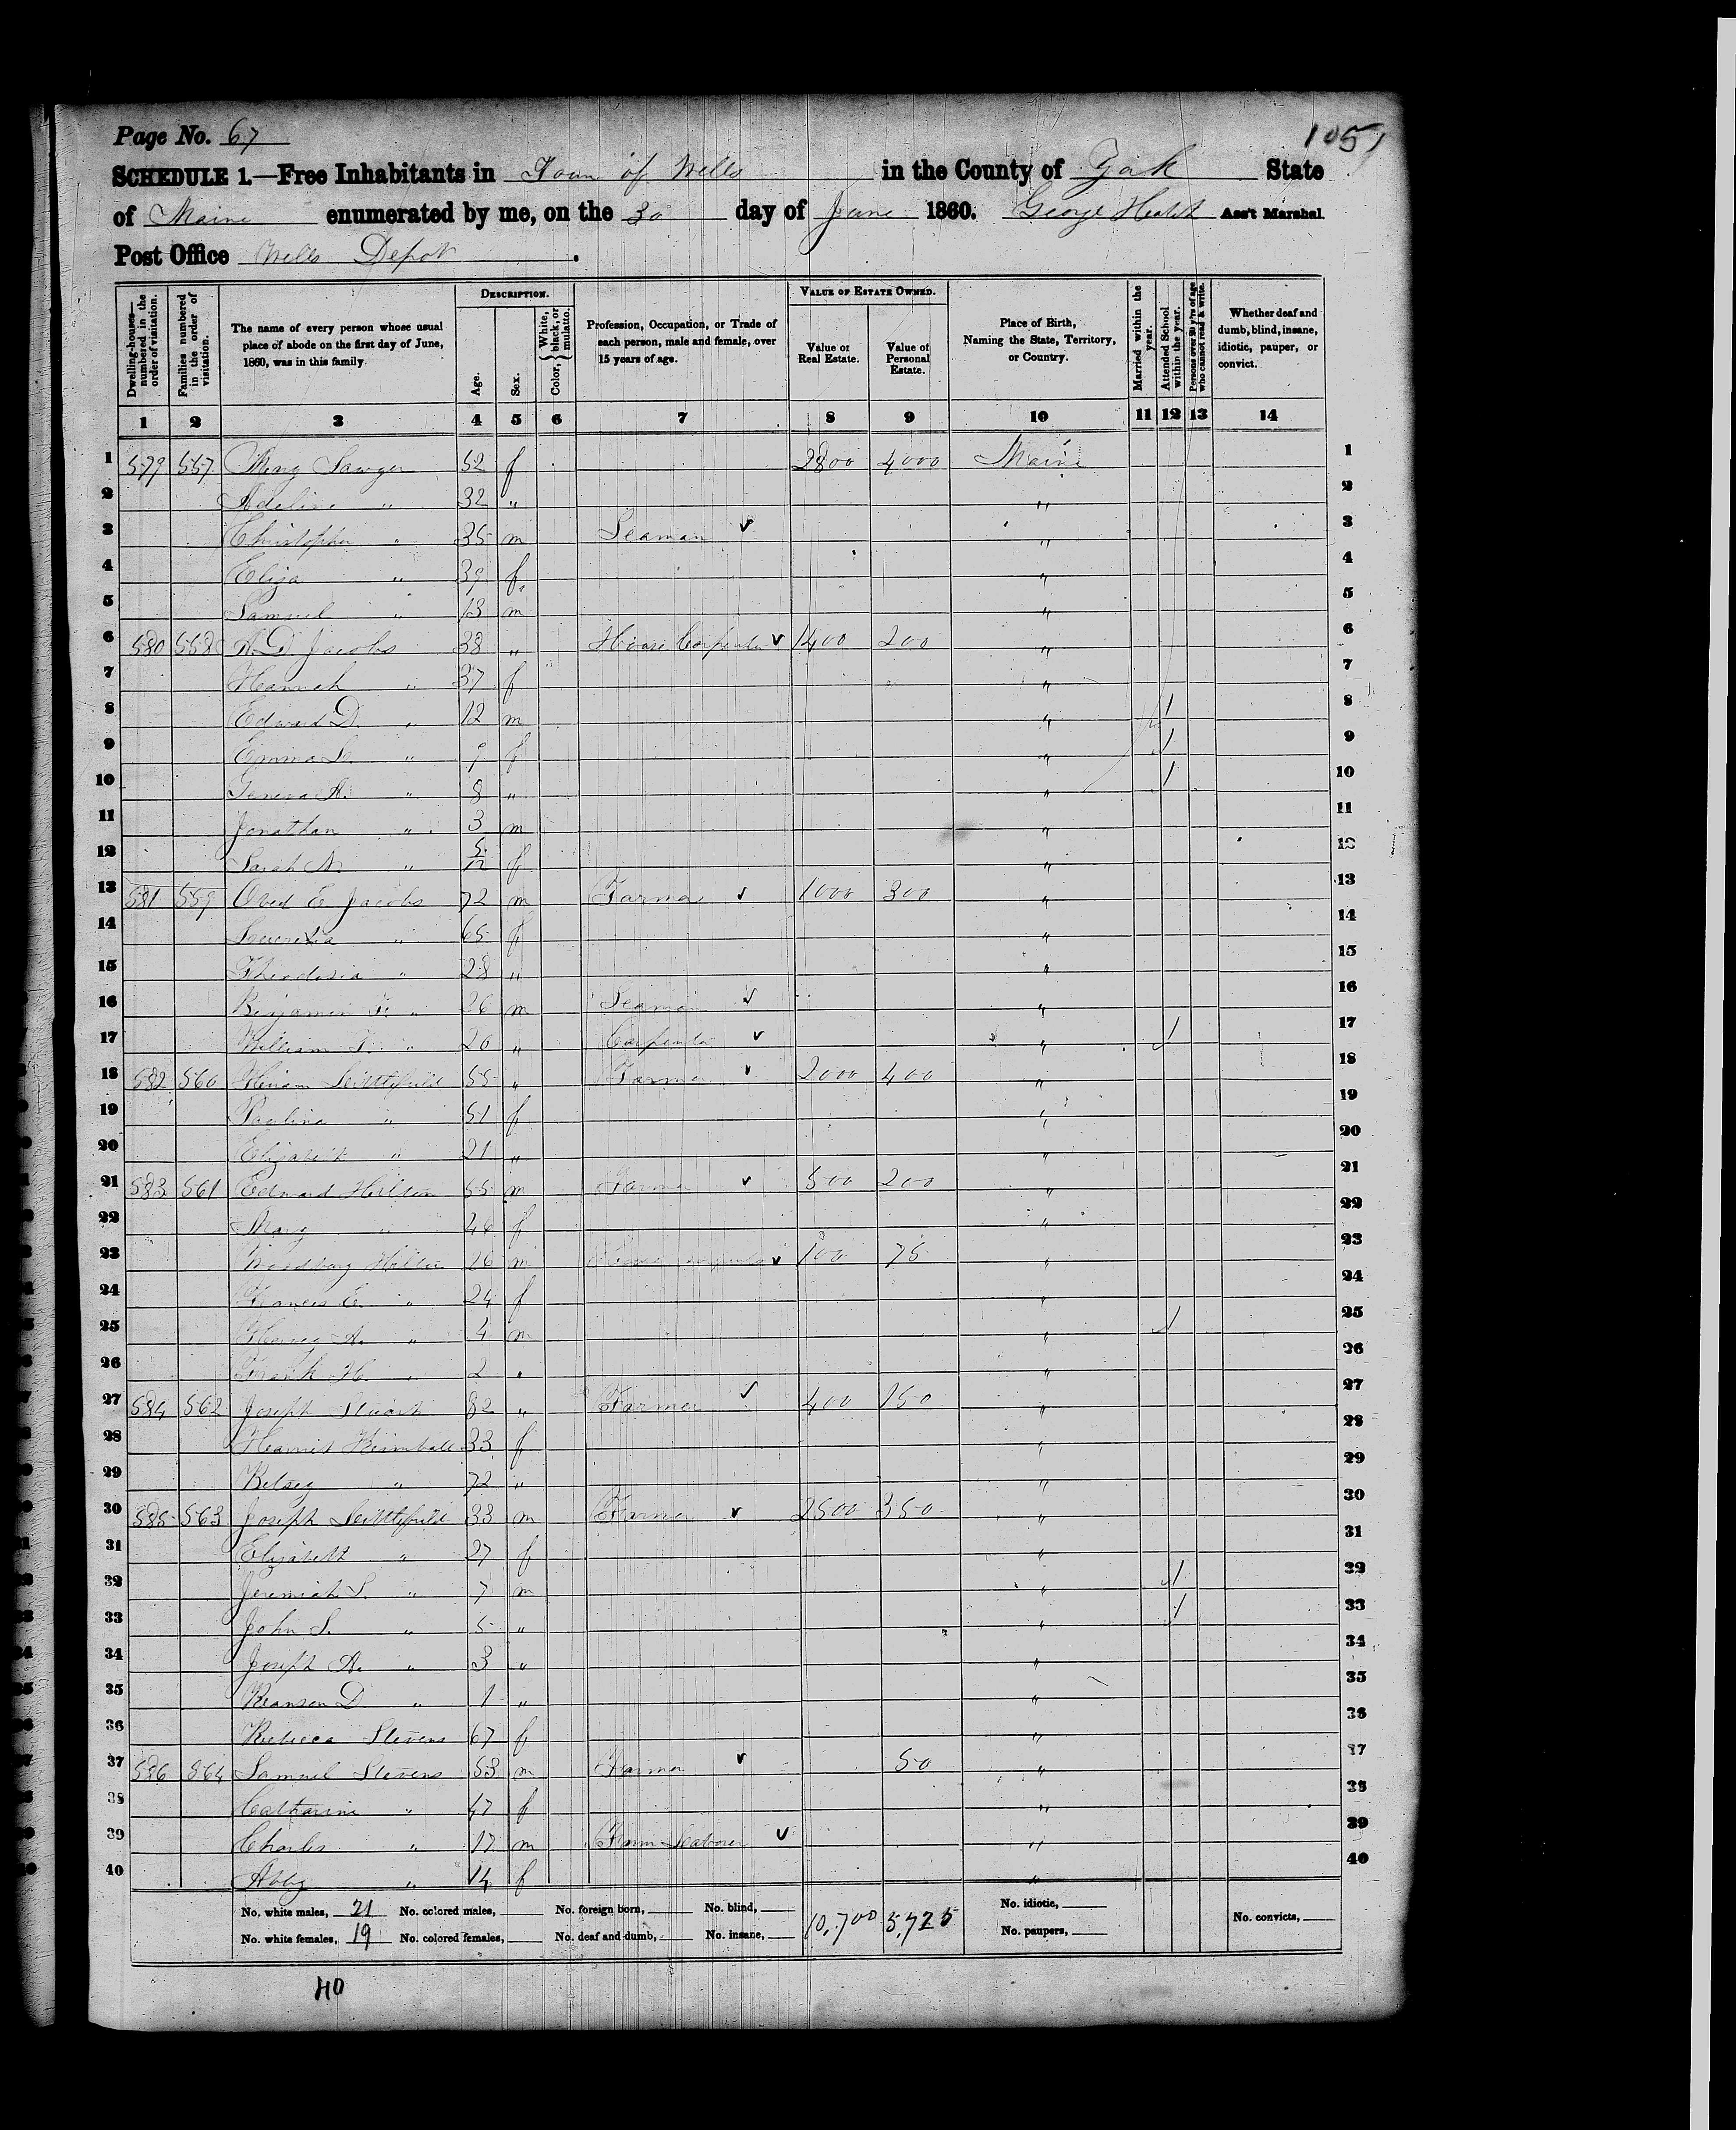 Page No. 67
1051
SCHEDULE 1.—Free Inhabitants in Town of Wells in the County of York State
of Maine enumerated by me, on the 30 day of June 1860. George Ass't Marshal.
Post Office Wells Depot.
Dwelling-houses— numbered in the order of visitation. Families numbered in the order of visitation. The name of every person whose usual place of abode on the first day of June, 1860, was in this family. DESCRIPTION. Age. Sex. Color, { White, black, or mulatto. Profession, Occupation, or Trade of each person, male and female, over 15 years of age. VALUE OF ESTATE OWNED. Value of Real Estate. Value of Personal Estate. Place of Birth, Naming the State, Territory, or Country. Married within the year. Attended School within the year. Persons over 20 y'rs of age who cannot read & write. Whether deaf and dumb, blind, insane, idiotic, pauper, or convict.
1 2 3 4 5 6 7 8 9 10 11 12 13 14
1 579 557 Sawyer 52 f 2800 4000 Maine 1
2 Adeline " 32 " " 2
3 Christopher " 35 m Seaman ✓ " 3
4 Eliza " 39 f " 4
5 Samuel " 13 m " 5
6 580 558 A. D. Jacobs 38 " House Carpenter ✓ 1400 200 " 6
7 Hannah " 37 f " 7
8 Edward D. " 12 m " / 8
9 Emma " 9 f " / 9
10 Geneva A. " 8 " " / 10
11 Jonathan " 3 m " 11
12 Sarah " 5/12 f " 12
13 581 559 Obed E. Jacobs 72 m Farmer ✓ 1000 300 " 13
14 Lucretia " 65 f " 14
15 Theodosia " 28 " " 15
16 Benjamin F. " 26 m Seaman ✓ " 16
17 William " 20 " Carpenter ✓ " / 17
18 582 560 Hiram Littlefield 55 " Farmer ✓ 2000 400 " 18
19 Paulina " 51 f " 19
20 Elizabeth " 21 " " 20
21 583 561 Edward Hilton 55 m Farmer ✓ 500 200 " 21
22 Mary " 46 f " 22
23 Woodbury 26 m House Carpenter ✓ 100 75 " 23
24 Frances E. " 24 f " 24
25 A. " 4 m " / 25
26 Frank H. " 2 " " 26
27 584 562 Joseph Stuart 82 " Farmer ✓ 400 150 " 27
28 Harriet Kimball 33 f " 28
29 Betsey " 72 " " 29
30 585 563 Joseph Littlefield 33 m Farmer ✓ 2500 350 " 30
31 Elizabeth " 27 f " 31
32 Jeremiah S. " 7 m " / 32
33 John S. " 5 " " / 33
34 Joseph A. " 3 " " 34
35 D. " 1 " " 35
36 Rebecca Stevens 67 f " 36
37 586 564 Samuel Stevens 53 m Farmer ✓ 50 " 37
38 Catharine " 47 f " 38
39 Charles " 17 m Farm Laborer ✓ " 39
40 Abby " 14 f " 40
No. white males, 21 No. colored males, No. foreign born, No. blind, No. idiotic,
No. white females, 19 No. colored females, No. deaf and dumb, No. insane, 10,700 5,725 No. paupers, No. convicts,
40